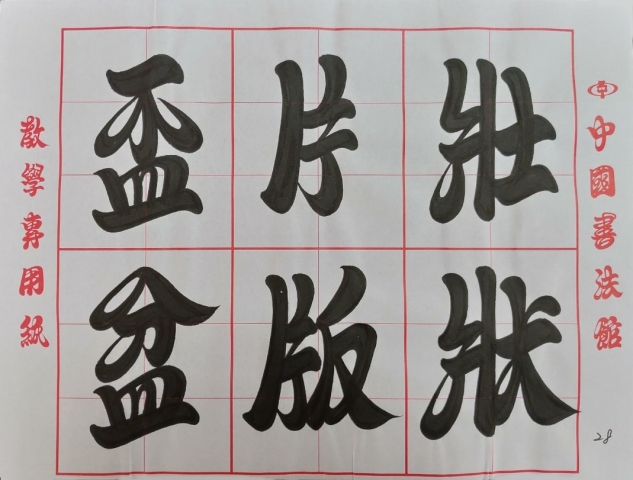 中國書法館
壯狀
片版
盃盆
教學專用紙
28